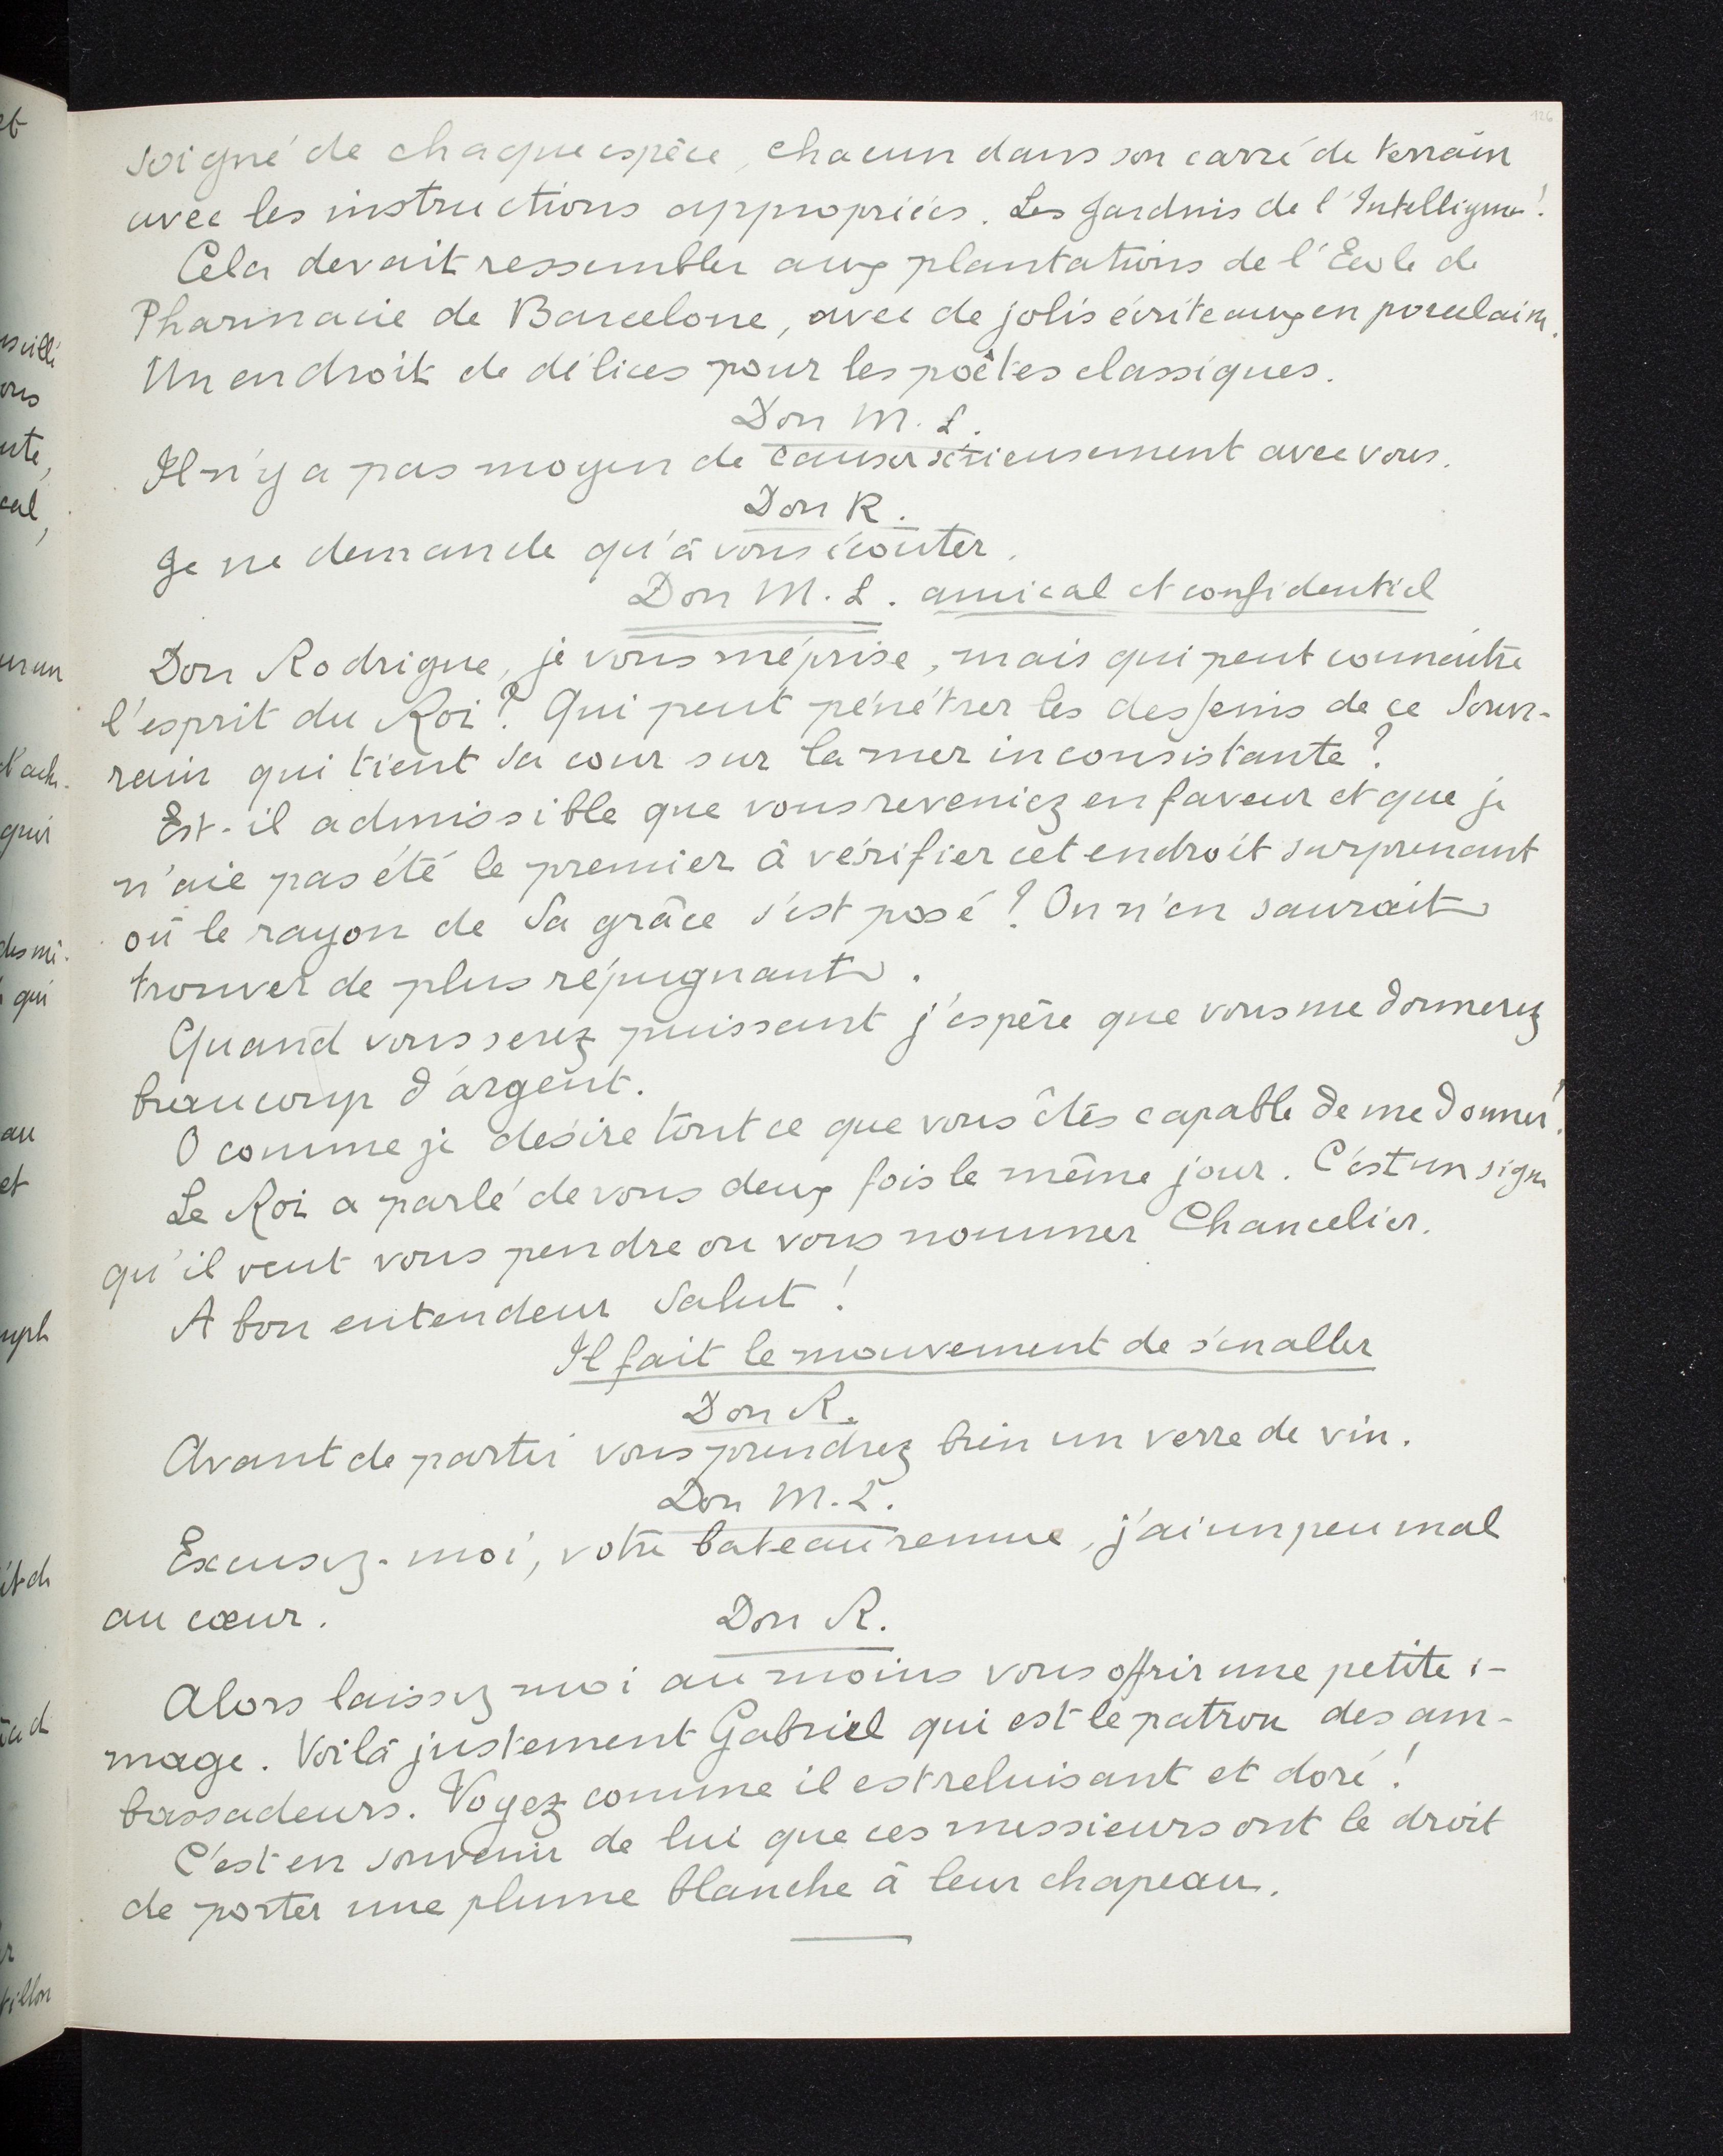 126
soigné de chaque espèce, chacun dans son carré de terrain
avec les instructions appropriées. Les Jardins de l'Intelligence!
Cela devait ressembler aux plantations de l'Ecole de
Pharmacie de Barcelone, avec de jolis écriteaux en porcelaine.
Un endroit de délices pour les poètes classiques.
Don M. L.
Il n'y a pas moyen de causer sérieusement avec vous.
Don R.
Je ne demande qu'à vous écouter.
Don M. L. amical et confidentiel
Don Rodrigue, je vous méprise, mais qui peut connaître
l'esprit du Roi? Qui peut pénétrer les desseins de ce Souve-
rain qui tient sa cour sur la mer inconsistante?
Est-il admissible que vous reveniez en faveur et que je
n'aie pas été le premier à vérifier cet endroit surprenant
où le rayon de Sa grâce s'est posé? On n'en saurait
trouver de plus répugnant.
Quand vous serez puissant j'espère que vous me donnerez
beaucoup d'argent.
O comme je désire tout ce que vous êtes capable de me donner!
Le Roi a parlé de vous deux fois le même jour. C'est un signe
qu'il veut vous pendre ou vous nommer Chancelier.
A bon entendeur Salut!
Il fait le mouvement de s'en aller
Don R.
Avant de partir vous prendrez bien un verre de vin.
Don M. L.
Excusez-moi, votre bateau remue, j'ai un peu mal
au cœur.
Don R.
Alors laissez moi au moins vous offrir une petite i-
mage. Voilà justement Gabriel qui est le patron des am-
bassadeurs. Voyez comme il est reluisant et doré!
C'est en souvenir de lui que ces messieurs ont le droit
de porter une plume blanche à leur chapeau.